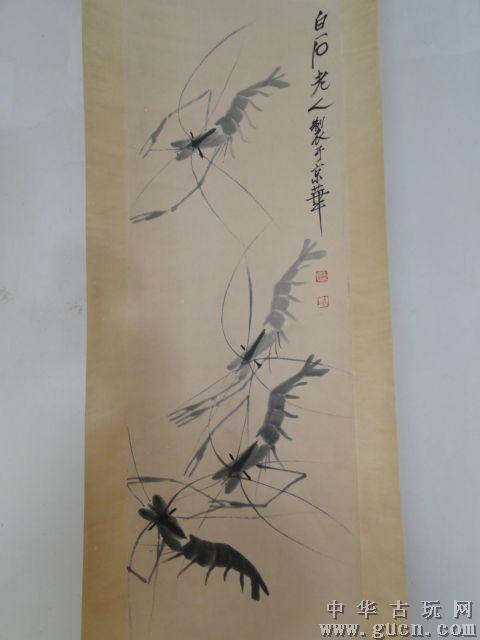 白石老人製于京華
中华古玩网
www.gucn.com